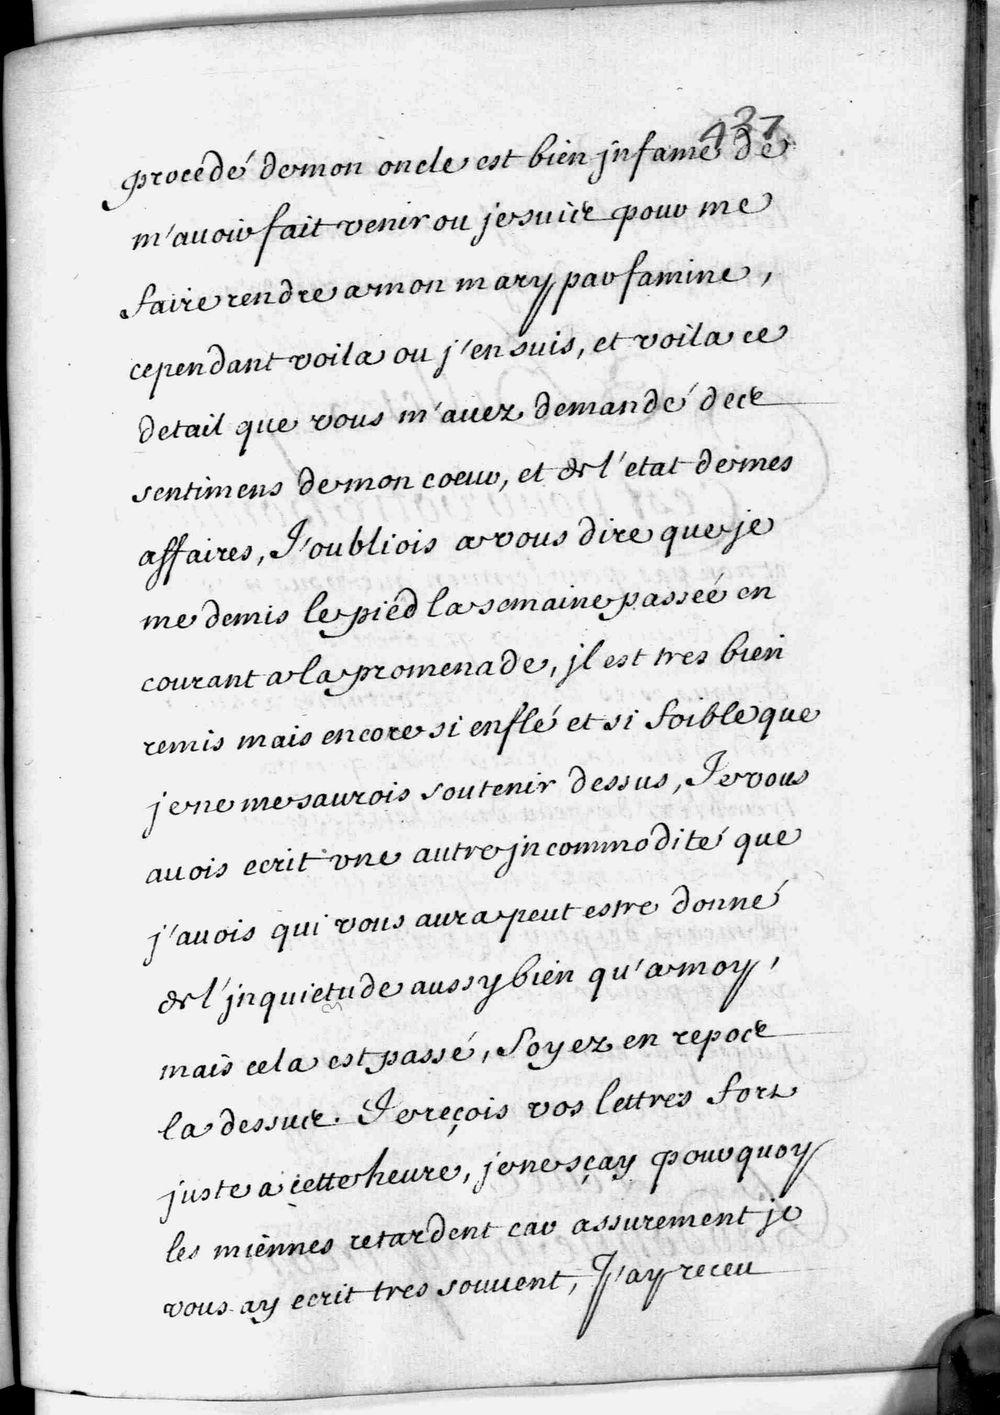 437
procedé de mon oncle est bien jnfame de
m'auoir fait venir ou je suis pour me
faire rendre a mon mary par famine,
cependant voila ou j'en suis, et voila ce
detail que vous m'auez demandé des
sentimens de mon coeur, et de l'etat de mes
affaires, J'oubliois a vous dire que je
me demis le piéd la semaine passeé en
courant a la promenade, jl est tres bien
remis mais encore si enflé et si foible que
je ne me saurois soutenir dessus, Je vous
auois ecrit vne autre jncommodité que
j'auois qui vous aura peut estre donné
de l'jnquietude aussy bien qu'a moy,
mais cela est passé, Soyez en repos
la dessus. Je reçois vos lettres fort
juste a cette heure, je ne sçay pourquoy
les miennes retardent car assurement je
vous ay ecrit tres souuent, J'ay receu